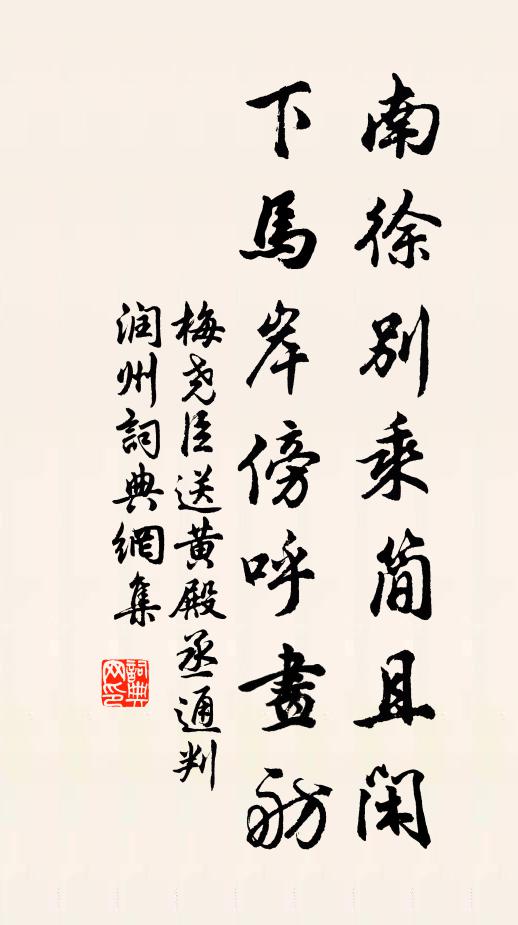 南徐別乘简且闲
下馬岸傍呼畫舫
梅尧臣送黄殿丞通判
润州詞典網集
詞典网印